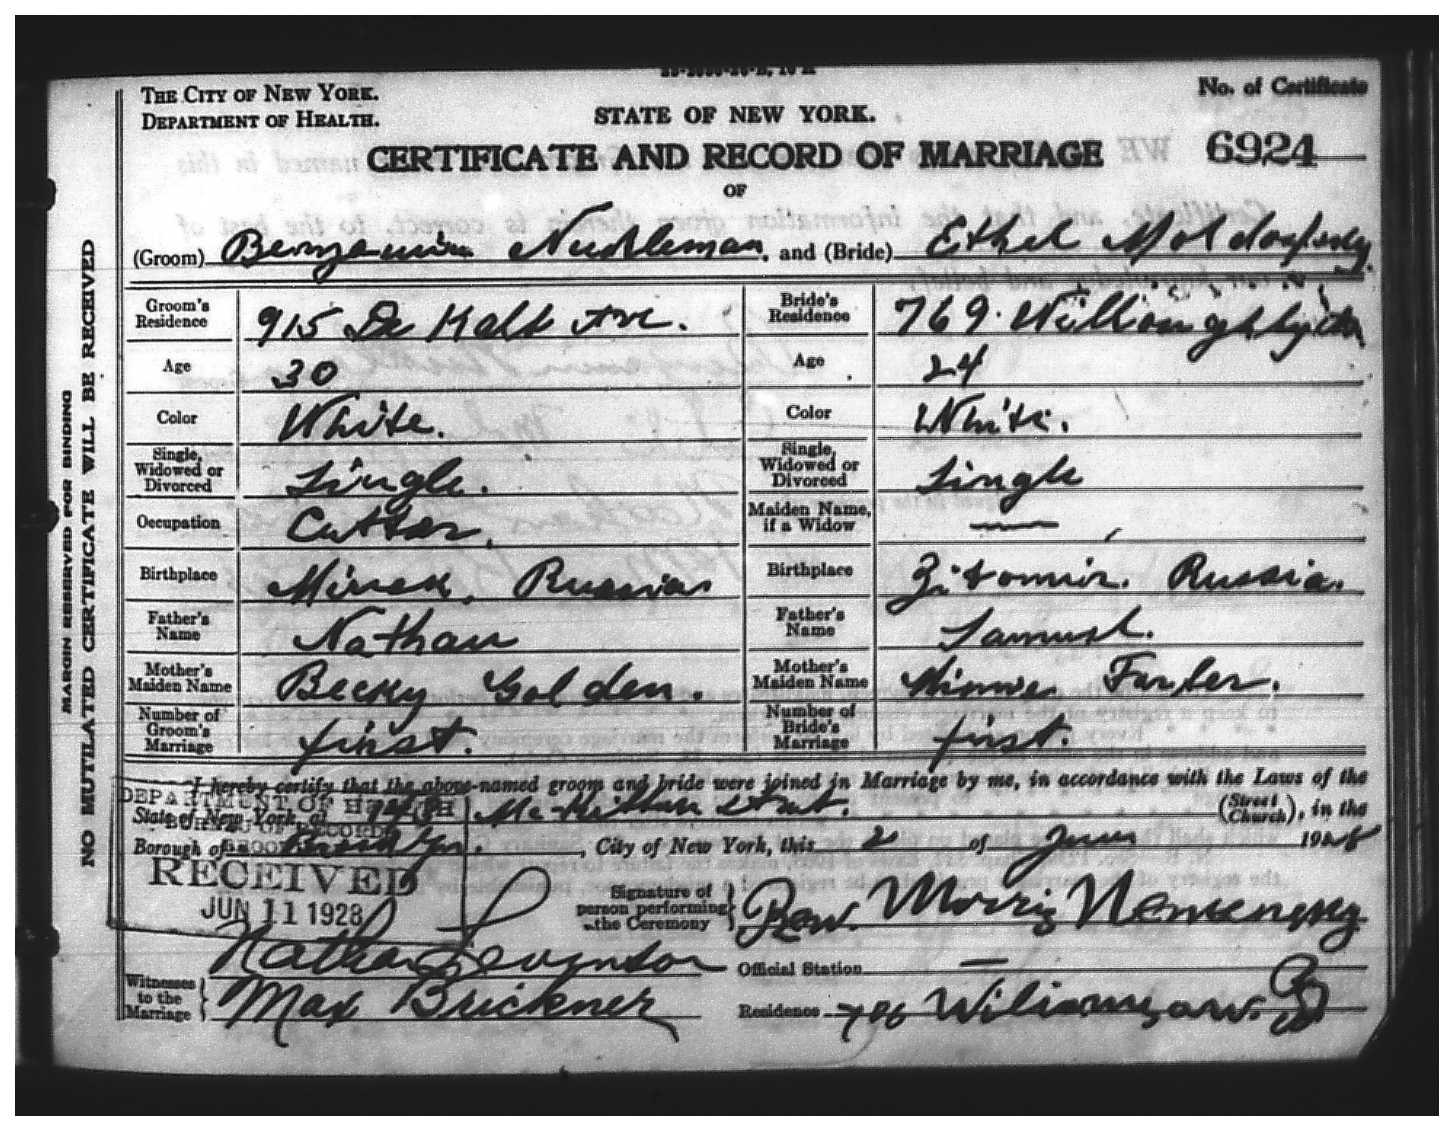 THE CITY OF NEW YORK.
DEPARTMENT OF HEALTH.
STATE OF NEW YORK.
No. of Certificate
6924
CERTIFICATE AND RECORD OF MARRIAGE
OF
(Groom) Benjamin Nudleman, and (Bride) Ethel Moldofsky
Groom's Residence 915 De Kalb Ave. Bride's Residence 769 Willoughby
Age 30 Age 24
Color White. Color White.
Single, Widowed or Divorced Single. Single, Widowed or Divorced Single
Occupation Cutter. Maiden Name, if a Widow —
Birthplace Minsk, Russia Birthplace Zitomir. Russia.
Father's Name Nathan Father's Name Samuel.
Mother's Maiden Name Becky Golden. Mother's Maiden Name Minnie Farber.
Number of Groom's Marriage first. Number of Bride's Marriage first.
I hereby certify that the above-named groom and bride were joined in Marriage by me, in accordance with the Laws of the
State of New York, at Street. (Street Church), in the
Borough of Brooklyn., City of New York, this 2 of June 1928
DEPARTMENT OF HEALTH
BUREAU OF RECORDS
RECEIVED
JUN 11 1928
Signature of person performing the Ceremony Rev. Morris
Witnesses to the Marriage Nathan Levinson
Max Brickner
Official Station —
Residence
MARGIN RESERVED FOR BINDING
NO MUTILATED CERTIFICATE WILL BE RECEIVED